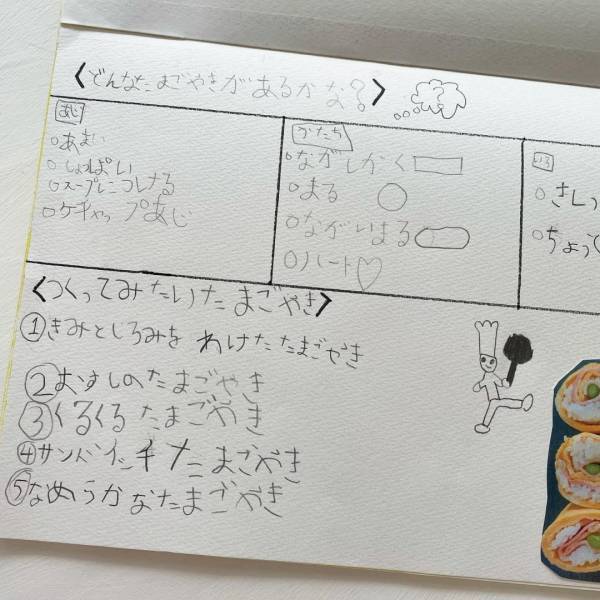 〈どんなたまごやきがあるかな?〉
あじ
○あまい
○しょっぱい
○スープにつける
○ケチャップあじ
かたち
○ながしかく
○まる
○ながいまる
○ハート
いろ
○きいろ
○ちょっ
〈つくってみたいたまごやき〉
①きみとしろみをわけたたまごやき
②おすしのたまごやき
③くるくるたまごやき
④サンドイッチたまごやき
⑤なめらかなたまごやき